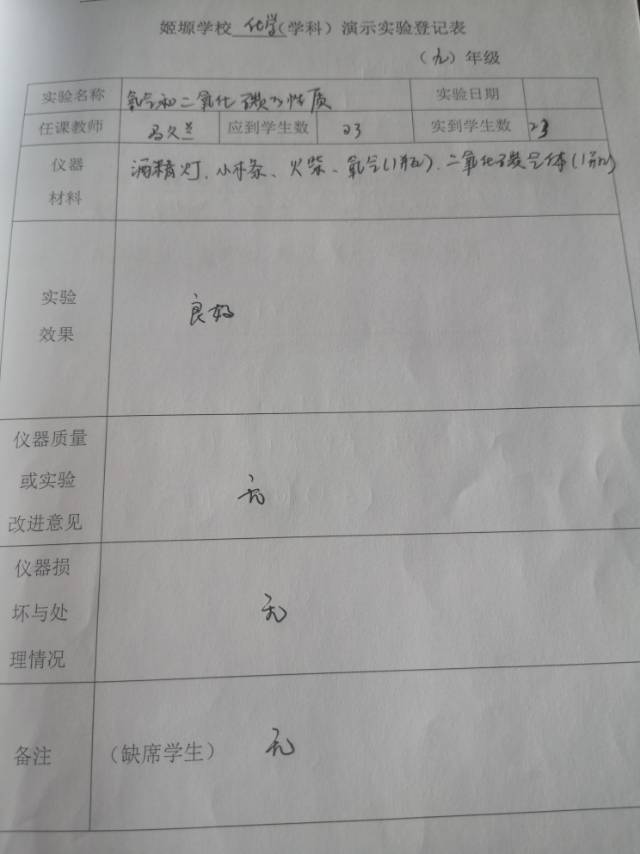 姬塬学校 化学（学科）演示实验登记表
（九）年级
实验名称 氧气和二氧化碳的性质 实验日期
任课教师 马久兰 应到学生数 23 实到学生数 23
仪器 酒精灯、小木条、火柴、氧气(1瓶)、二氧化碳气体(1瓶)
材料
实验
效果 良好
仪器质量
或实验 无
改进意见
仪器损
坏与处 无
理情况
备注 （缺席学生） 无